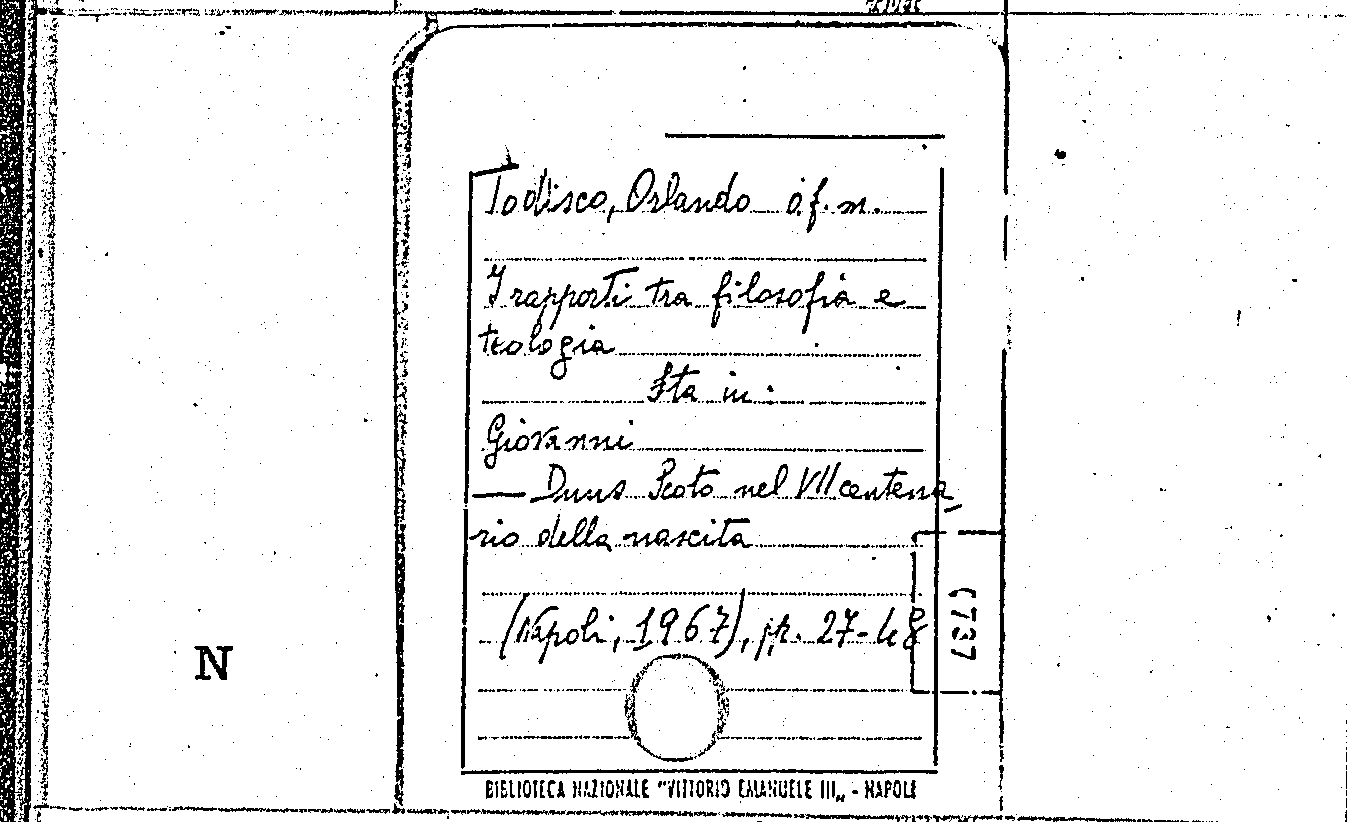 Todisco, Orlando o.f.m.
I rapporti tra filosofia e
teologia
Sta in:
Giovanni
— Duns Scoto nel VII centena
rio della nascita
(Napoli, 1967), pp. 27-48
N
BIBLIOTECA NAZIONALE "VITTORIO EMANUELE III„ - NAPOLI